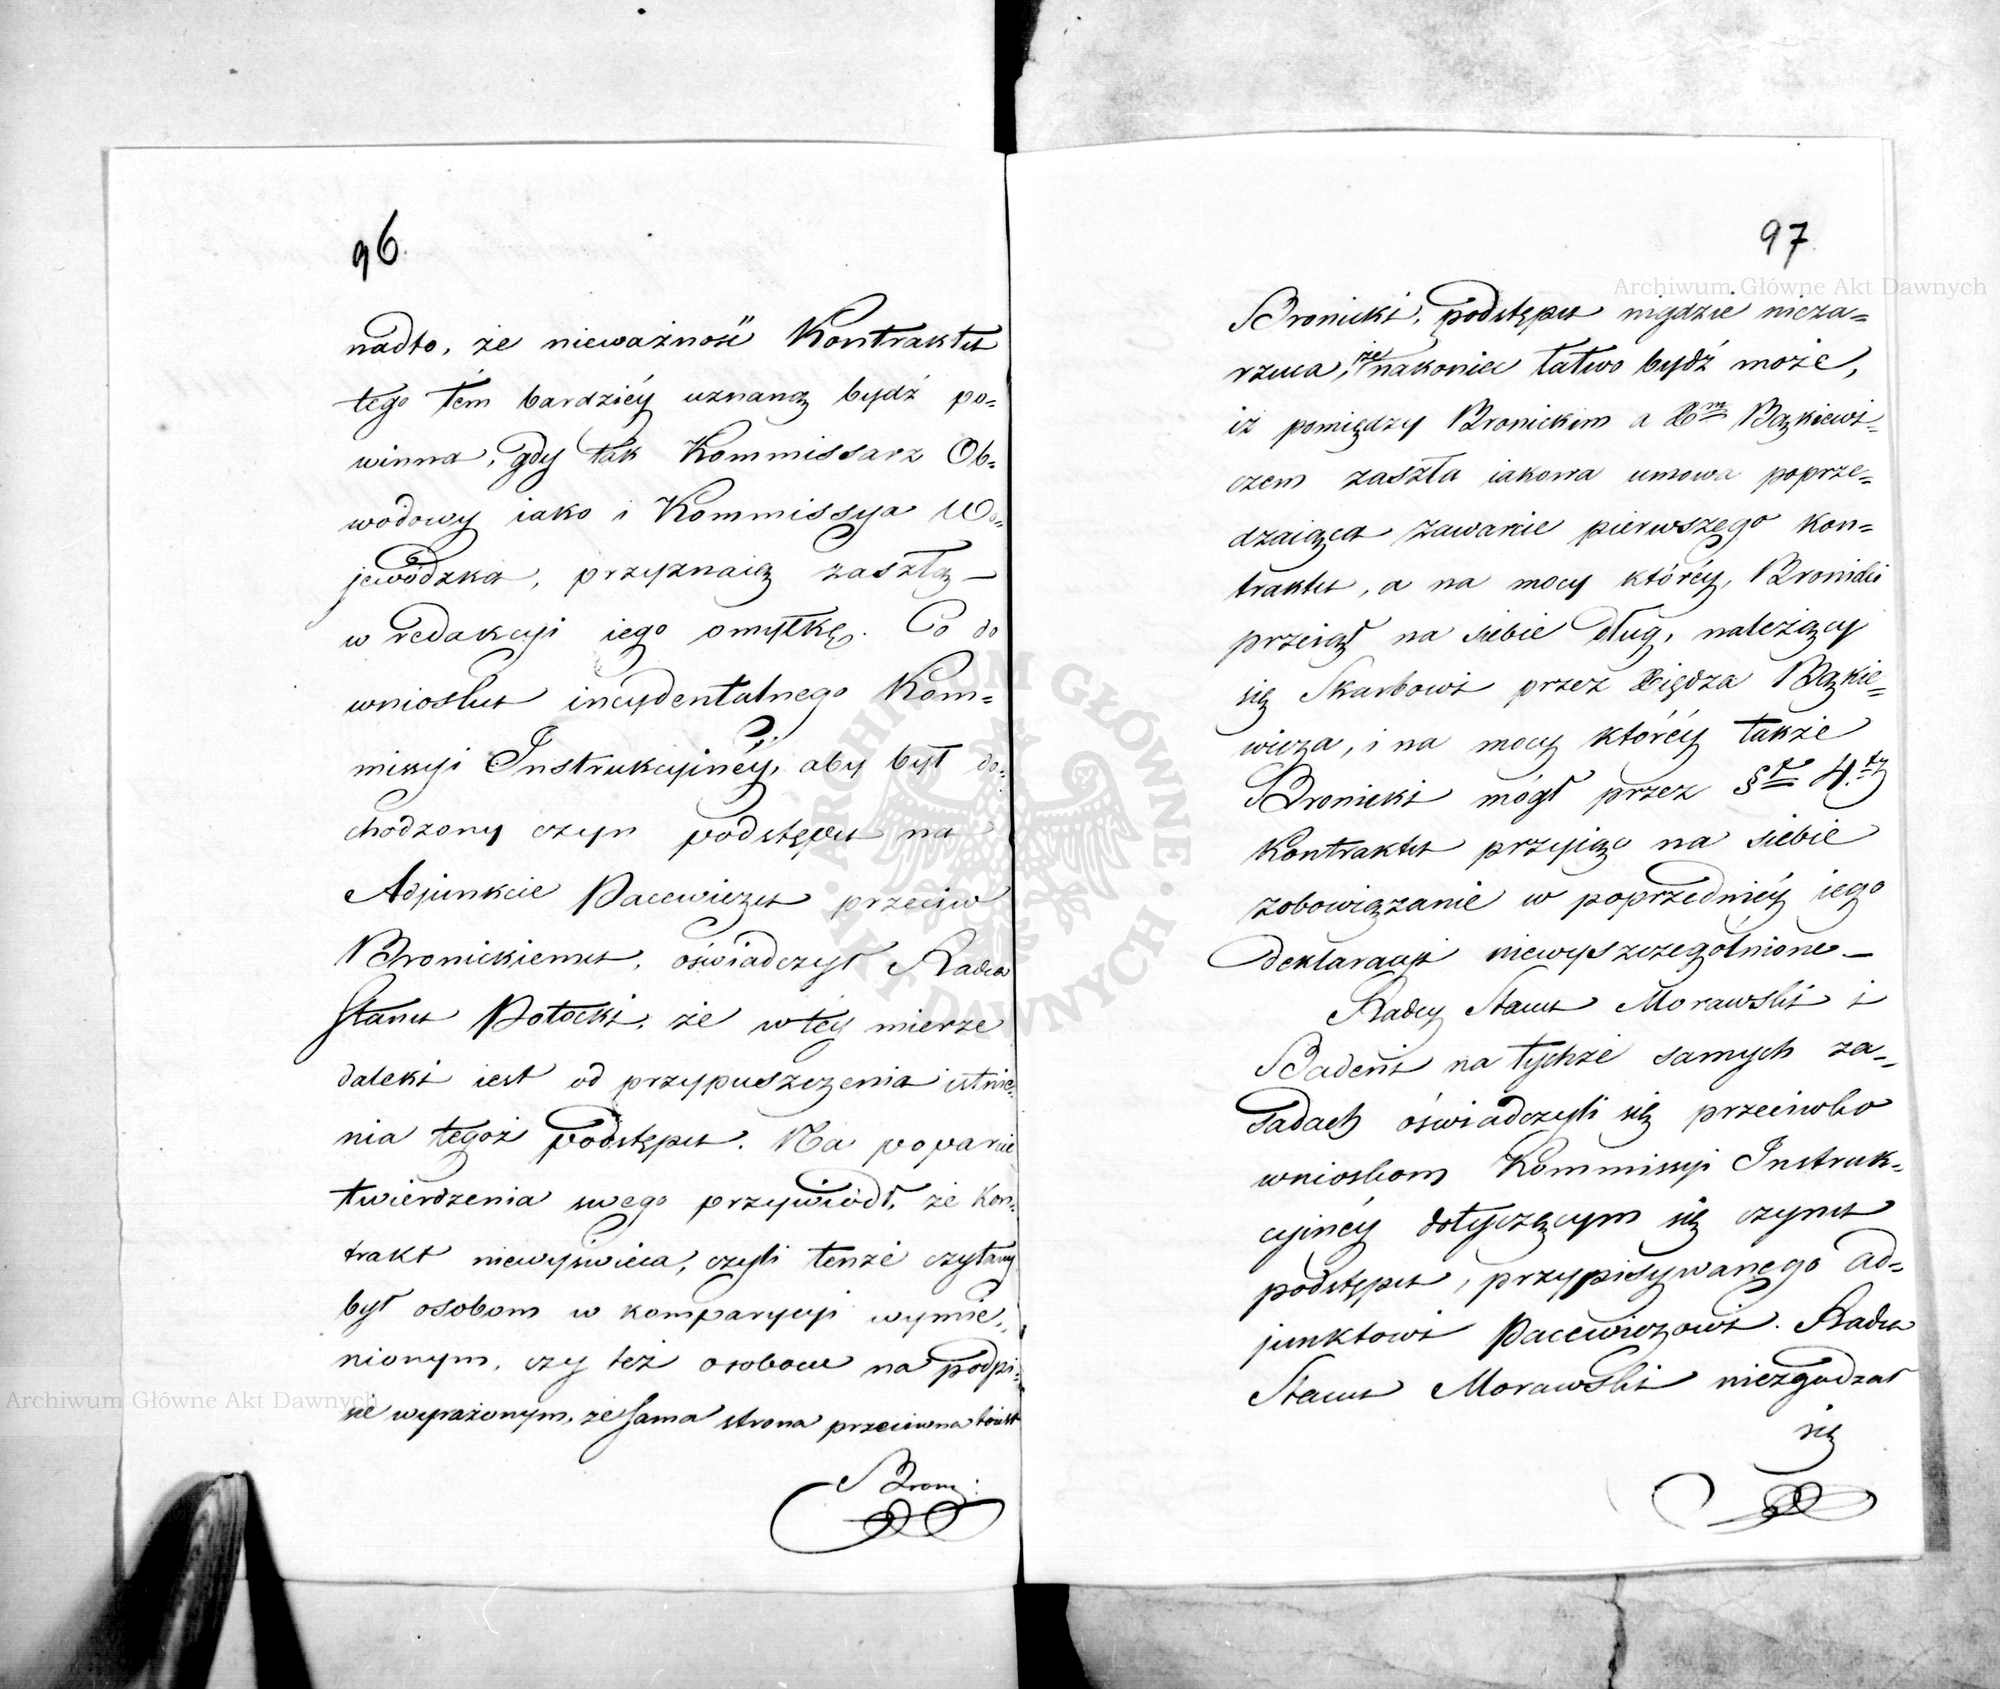 96.
nadto, że nieważność Kontraktu
tego tém bardziéy uznaną bydź po=
winna, gdy tak Kommissarz Ob=
wodowy iako i Kommissya Wo=
jewódzka, przyznaią zaszłą —
w redakcyi iego omyłkę. Co do
wniosku incydentalnego Kom=
missyi Instrukcyinéy, aby był do=
chodzony czyn podstępu na
Adjunkcie Pacewiczu przeciw
Bronickiemu, oświadczył Radca
Stanu Potocki, że w téy mierze
daleki iest od przypuszczenia istnie=
nia tegoż podstępu. Na poparcie
twierdzenia swego przywiódł, że Kon=
trakt niewyświeca, czyli tenże czytany
był osobom w komparycyi wymie=
nionym, czy też osobom na podpi=
sie wyrażonym, że sama strona przeciwna to iest
Broni:
97.
Bronicki, podstępu nigdzie nieza=
rzuca, że nakoniec łatwo bydź może,
iż pomiędzy Bronickim a Xm Bąkiewi=
czem zaszła iakowa umowa poprze=
dzaiąca zawarcie pierwszego kon=
traktu, a na mocy któréy, Bronicki
przeiął na siebie dług, należący
się Skarbowi przez Xiędza Bąkie=
wicza, i na mocy któréy także
Bronicki mógł przez § 4.ty
Kontraktu przyiąć na siebie
zobowiązanie w poprzedniéy iego
deklaracyi niewyszczególnione —
Radcy Stanu Morawski i
Badeni na tychże samych za=
sadach óświadczyli się przeciwko
wnioskom Kommissyi Instruk=
cyinéy dotyczącym się czynu
podstępu, przypisywanego Ad=
junktowi Pacewiczowi. Radca
Stanu Morawski niezgadzał
się
Archiwum Główne Akt Dawnych
Archiwum Główne Akt Dawnych
ARCHIWUM GŁÓWNE · AKT DAWNYCH ·